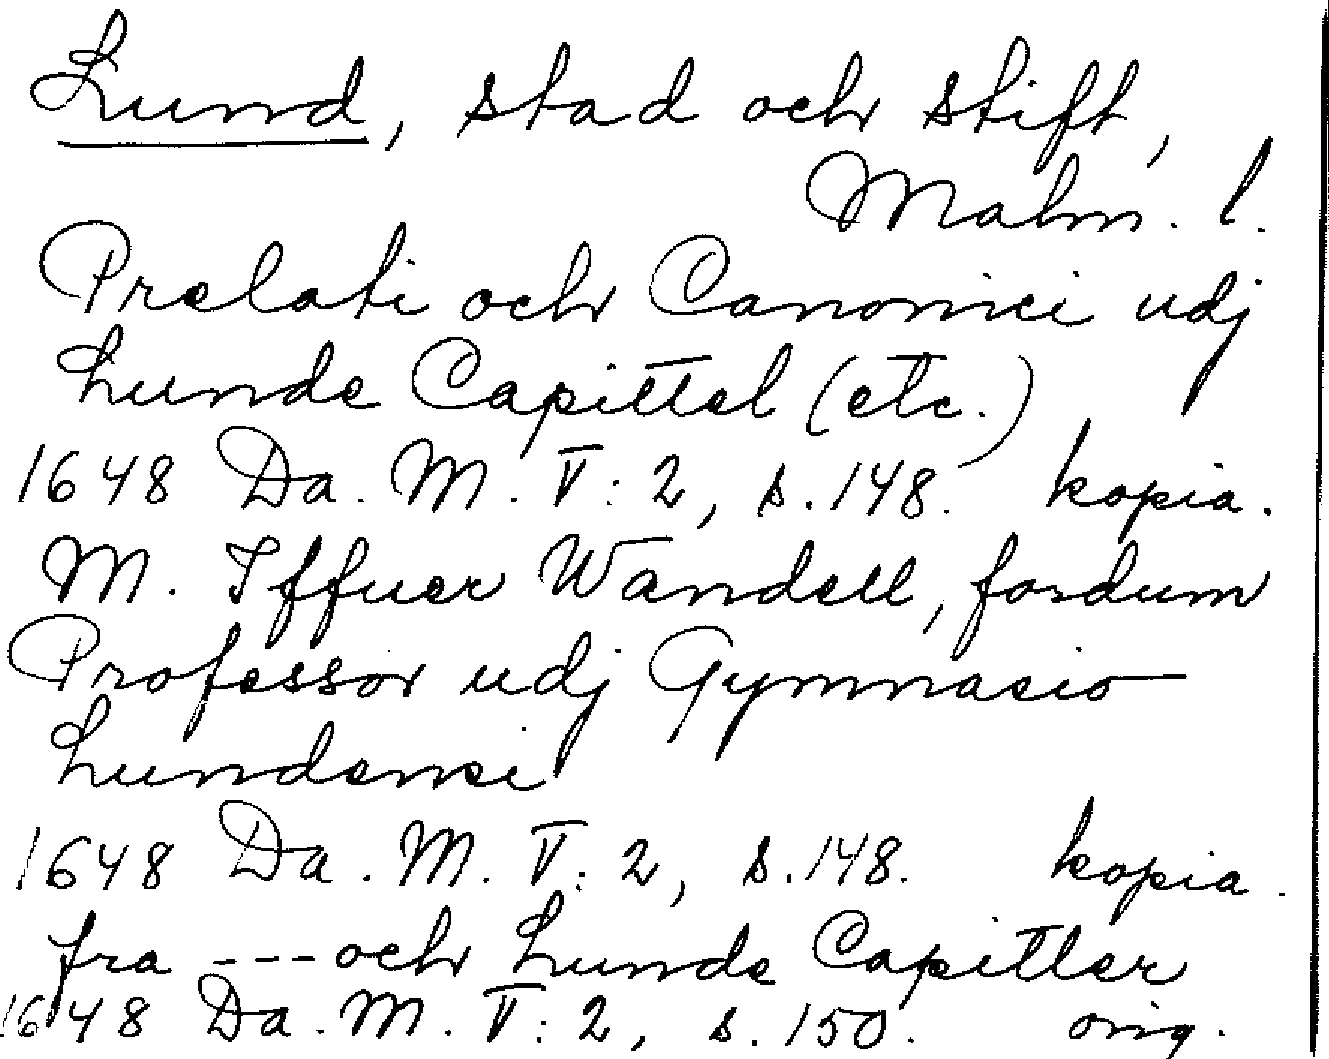 Lund, stad och stift,
Malm. l.
Prelati och Canonici udj
Lunde Capittel (etc.)
1648 Da. M. V: 2, s. 148. kopia.
M. Iffuer Wandell, fordum
Professor udj Gymnasio
Lundensi
1648 Da. M. V: 2, s. 148. kopia.
fra --- och Lunde Capitler
1648 Da. M. V: 2, s. 150. orig.